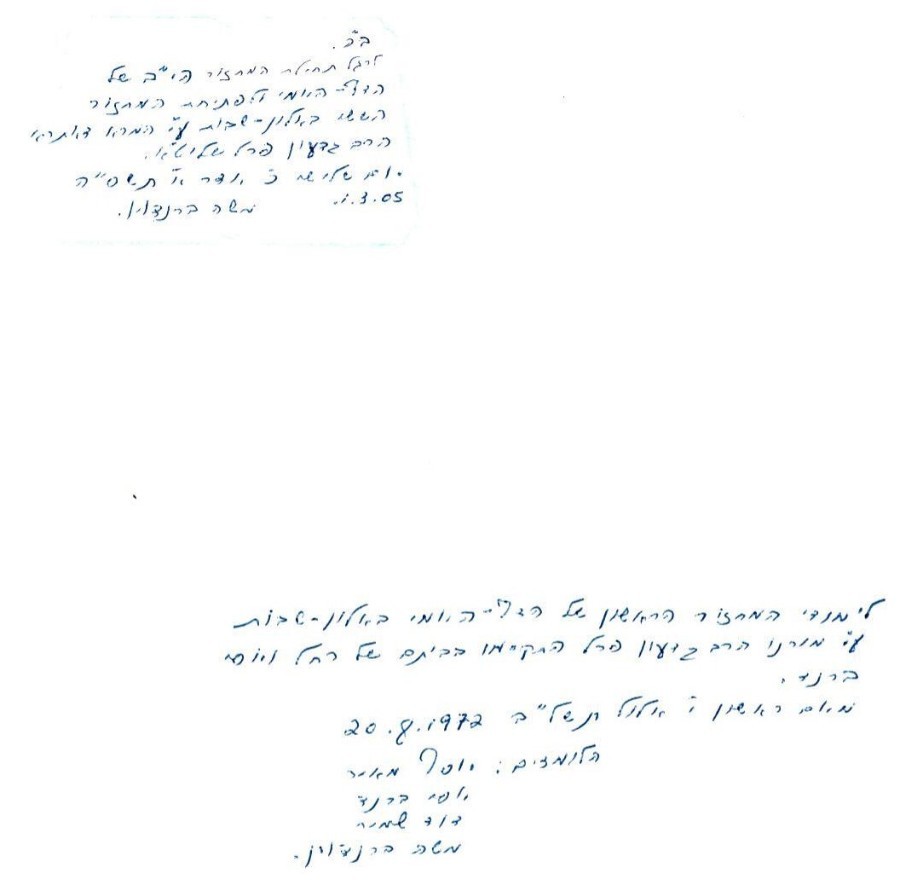 ב"ה.
לרגל תחילת המחזור הי"ב של
הדף-היומי ולפתיחת המחזור
הששי באלון-שבות ע"י המרא דאתרא
הרב גדעון פרל שליט"א.
יום שלישי כ' אדר א' תשס"ה
1.3.05 משה ברנדוין.
לימודי המחזור הראשון של הדף-היומי באלון-שבות
ע"י מורנו הרב גדעון פרל התקיימו בביתם של רחל ויוסי
ברנד.
מיום ראשון י' אלול תשל"ב 20.8.1972
הלומדים: יוסף מאיר
יוסי ברנד
דוד שמיר
משה ברנדוין.